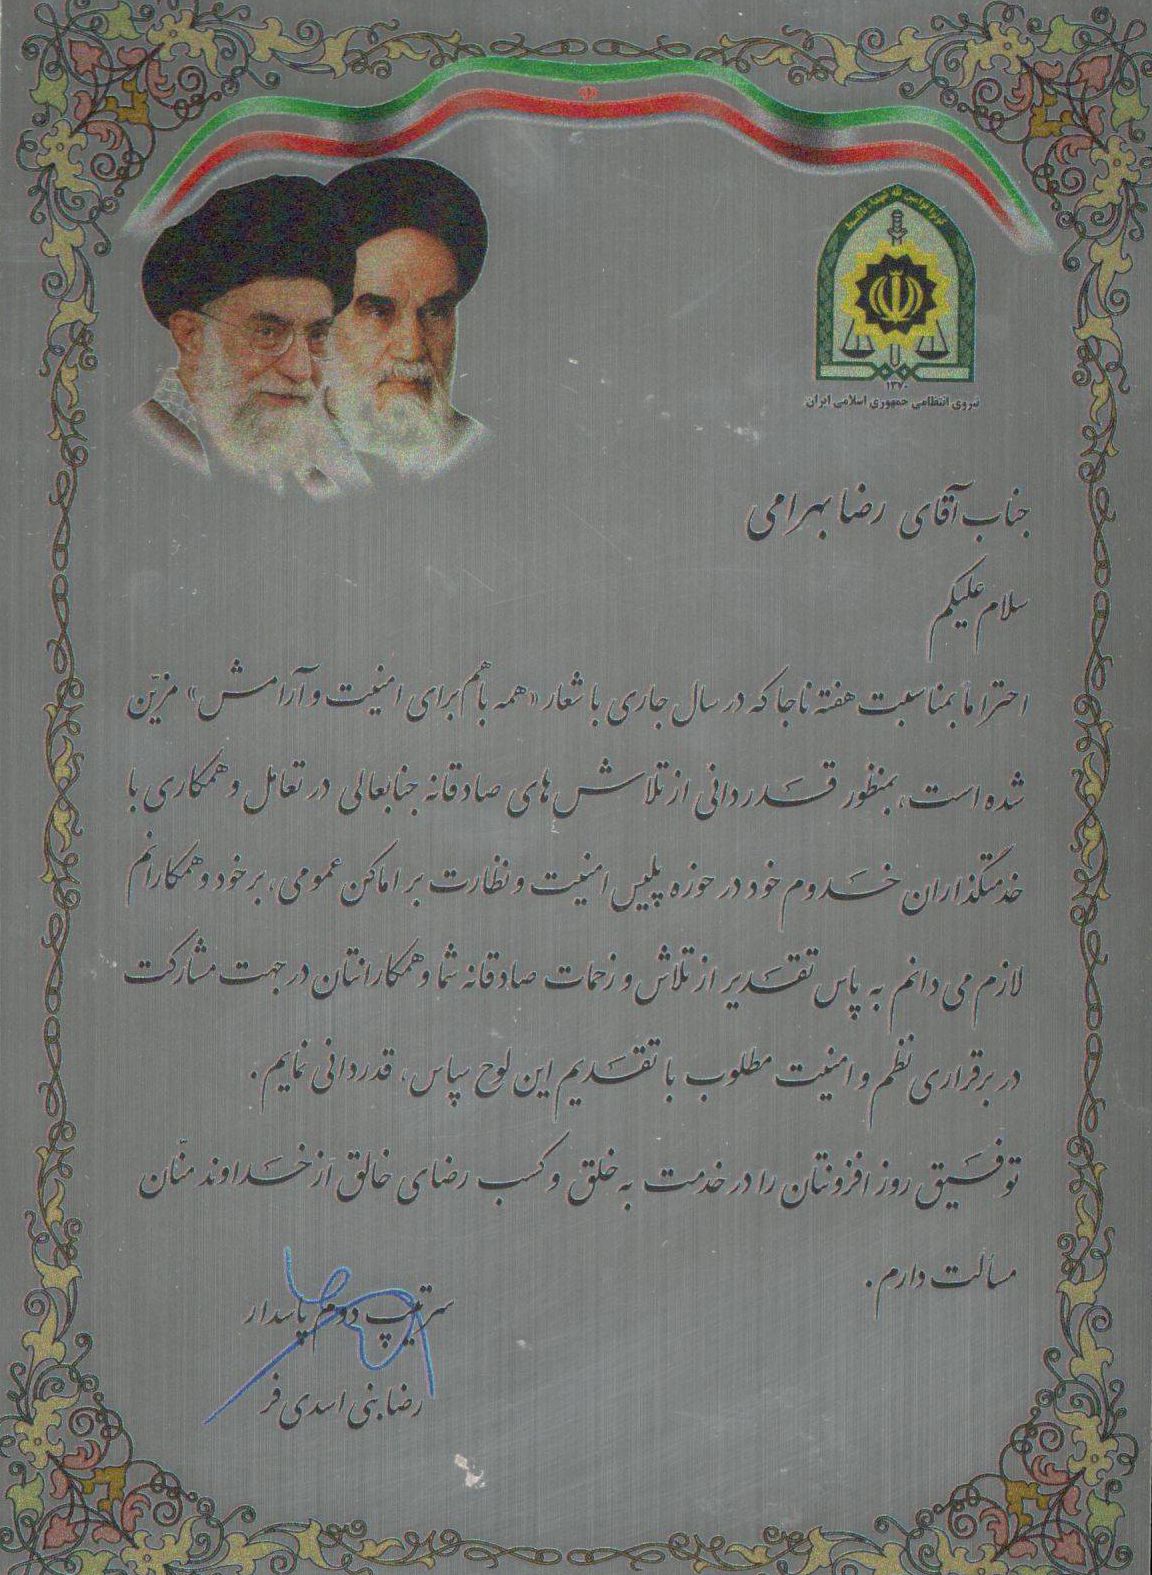 ۱۳۷۰
نیروی انتظامی جمهوری اسلامی ایران
جناب آقای رضا بهرامی
سلام علیکم
احتراماً بمناسبت هفته ناجا که در سال جاری با شعار «همه با هم برای امنیت و آرامش» مزیّن
شده است، بمنظور قدردانی از تلاش های صادقانه جنابعالی در تعامل و همکاری با
خدمتگذاران خدوم خود در حوزه پلیس امنیت و نظارت بر اماکن عمومی، بر خود و همکارانم
لازم می دانم به پاس تقدیر از تلاش و زحمات صادقانه شما و همکارانتان در جهت مشارکت
در برقراری نظم و امنیت مطلوب با تقدیم این لوح سپاس، قدردانی نمایم.
توفیق روز افزونتان را در خدمت به خلق و کسب رضای خالق از خداوند منّان
مسألت دارم.
سرتیپ دوم پاسدار
رضا بنی اسدی فر